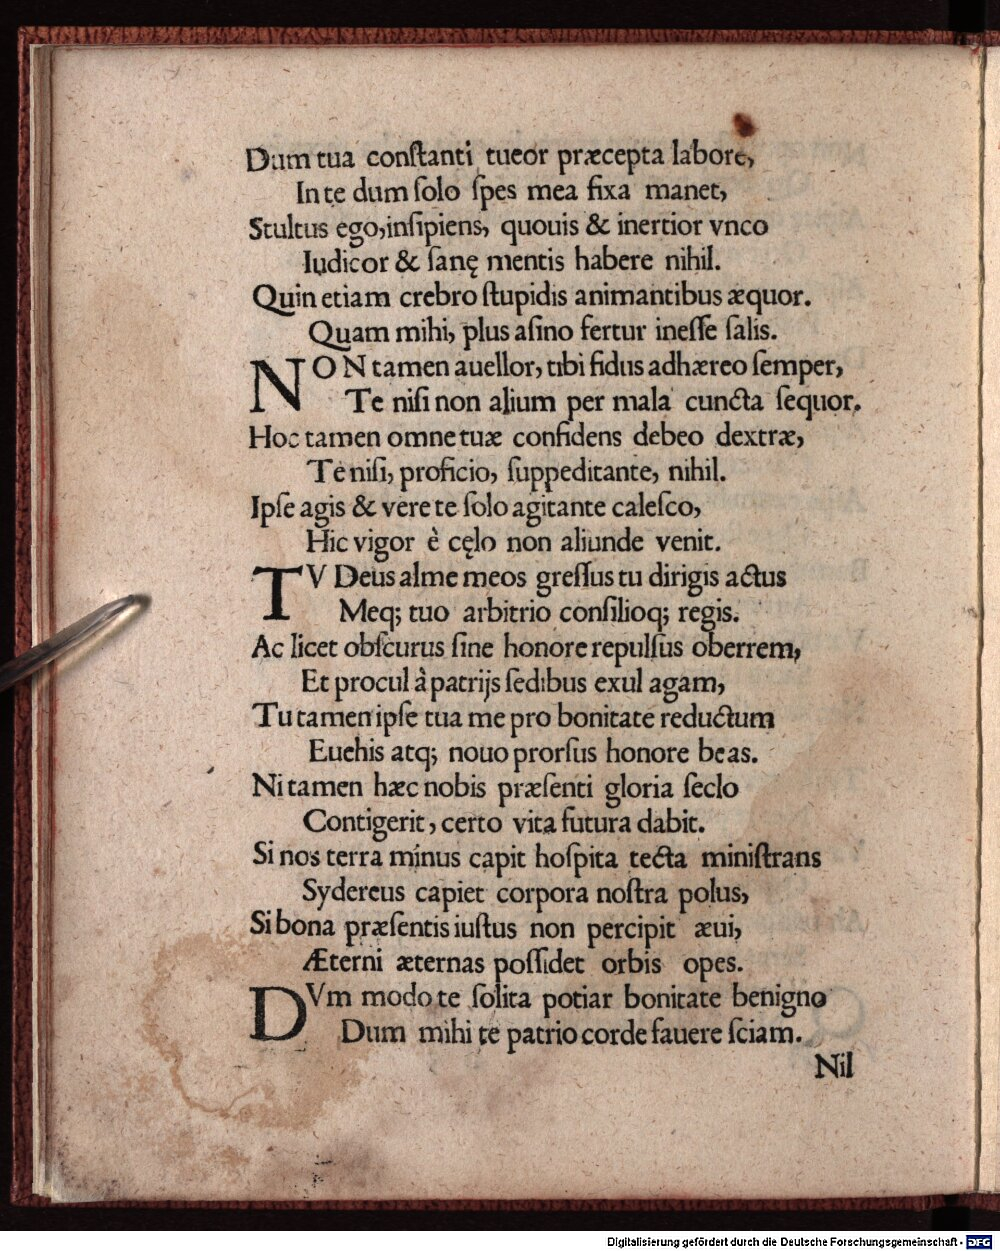 Dum tua conſtanti tueor præcepta labore,
In te dum ſolo ſpes mea fixa manet,
Stultus ego, inſipiens, quouis & inertior vnco
Iudicor & ſanę mentis habere nihil.
Quin etiam crebro ſtupidis animantibus æquor.
Quam mihi, plus aſino fertur ineſſe ſalis.
NON tamen auellor, tibi fidus adhæreo ſemper,
Te niſi non alium per mala cuncta ſequor.
Hoc tamen omne tuæ confidens debeo dextræ,
Te niſi, proficio, ſuppeditante, nihil.
Ipſe agis & vere te ſolo agitante caleſco,
Hic vigor è cęlo non aliunde venit.
TV Deus alme meos greſſus tu dirigis actus
Meq; tuo arbitrio conſilioq; regis.
Ac licet obſcurus ſine honore repulſus oberrem,
Et procul à patrijs ſedibus exul agam,
Tu tamen ipſe tua me pro bonitate reductum
Euehis atq; nouo prorſus honore beas.
Ni tamen hæc nobis præſenti gloria ſeclo
Contigerit, certo vita futura dabit.
Si nos terra minus capit hoſpita tecta miniſtrans
Sydereus capiet corpora noſtra polus,
Si bona præſentis iuſtus non percipit æui,
Æterni æternas poſſidet orbis opes.
DVm modo te ſolita potiar bonitate benigno
Dum mihi te patrio corde fauere ſciam.
Nil
Digitalisierung gefördert durch die Deutsche Forschungsgemeinschaft - DFG